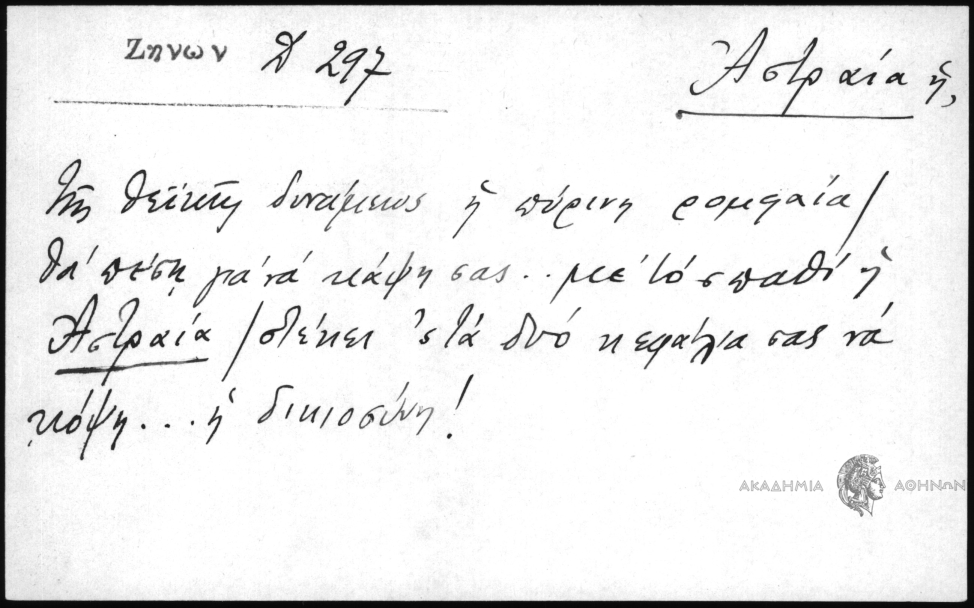 Ζηνων Δ 297
Ἀστραία ἡ,
τῆς θεϊκῆς δυνάμεως ἡ πύρινη ρομφαία /
θά πέσῃ γιά νά κάψῃ σας.. μέ τό σπαθί ἡ
Ἀστραία / στέκει 'στά δυό κεφάλια σας νά
κόψῃ... ἡ δικιοσύνη!
ΑΚΑΔΗΜΙΑ ΑΘΗΝΩΝ